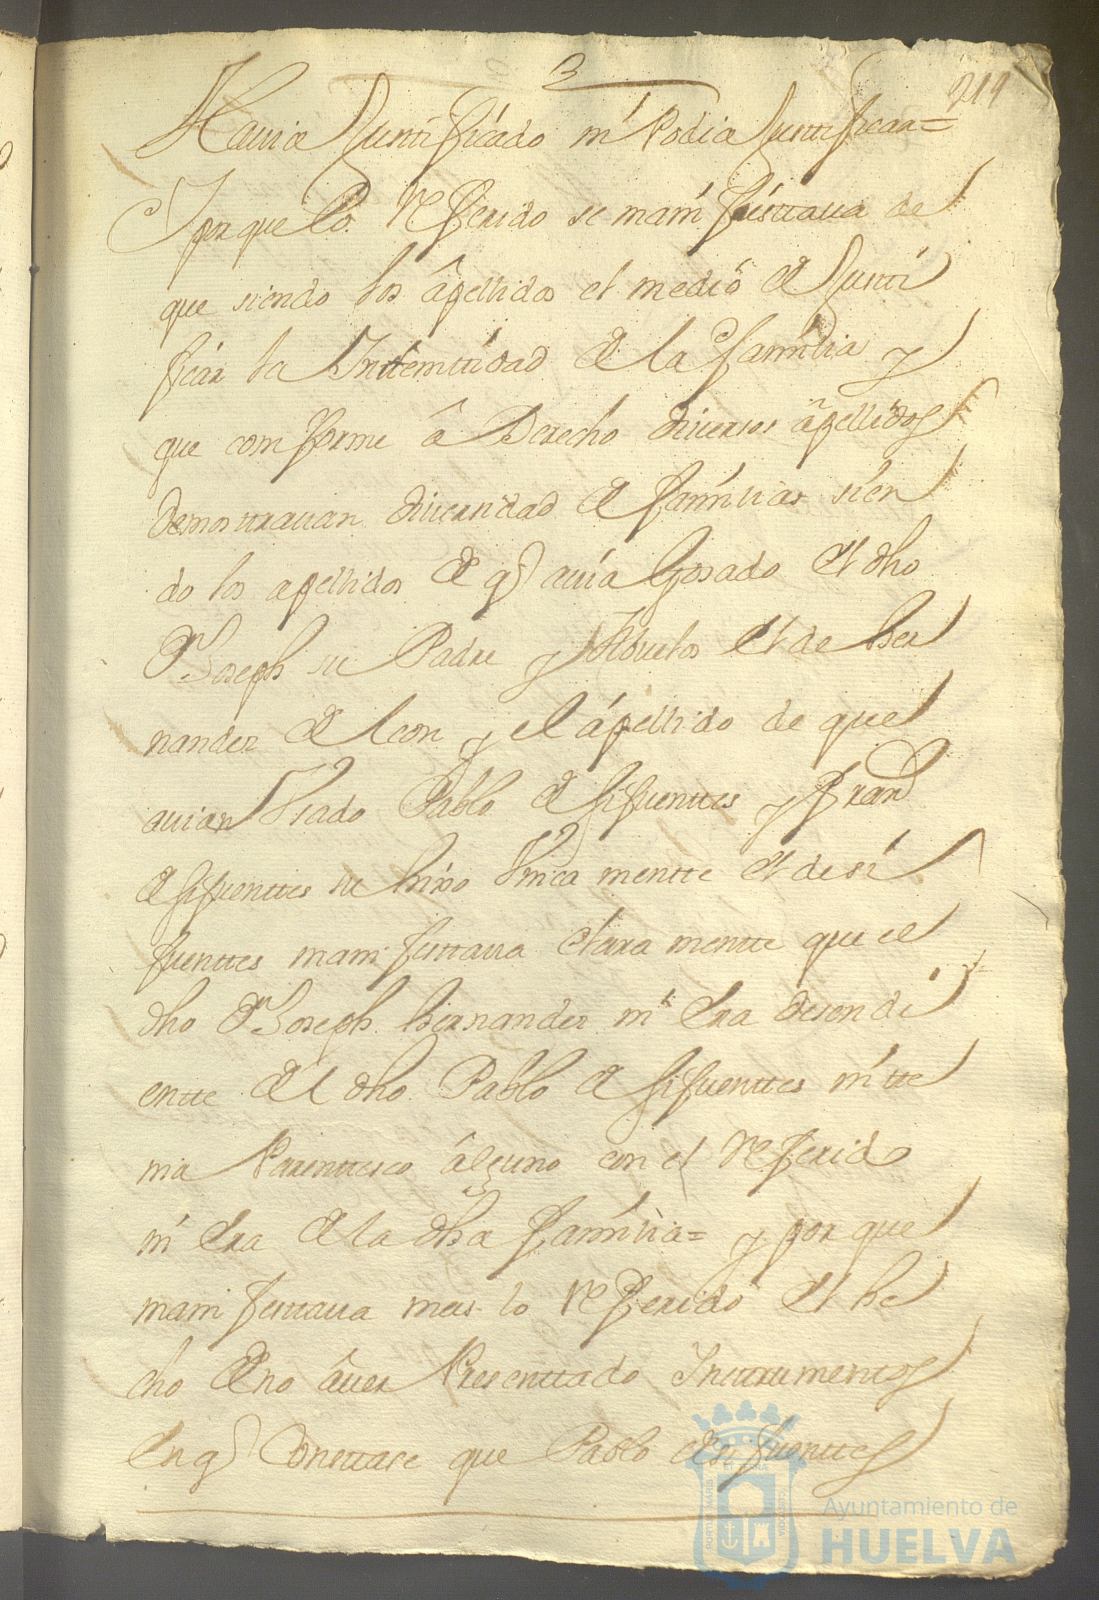 3
219
Hauia Justificado ni Podia Justificar=
Y porque lo Referido se manifestaua de
que siendo los âpellidos el medio de Justi
ficar la Indemtidad de la familia y
que comforme â Derecho diuersos âpellidos
demostrauan diuersidad de familias sien
do los apellidos de q auia Gosado el dho
D Joseph su Padre y Abuelos el de her
nandez de leon y el âpellido de que
auian Vsado Pablo de sifuenttes y Fran
de sifuenttes su hixo Vnica mentte el de si
fuenttes manifestaua clara mentte que el
dho D Joseph hernandez ni Era desendi
entte del dho Pablo de sifuenttes ni tte
nia Parenttesco âlguno con el Referido
ni Era de la dha familia= y por que
manifestaua mas lo Referido el he
cho de no âuer Presenttado Instrumentos
En q Constase que Pablo de sifuenttes
Ayuntamiento de
HUELVA